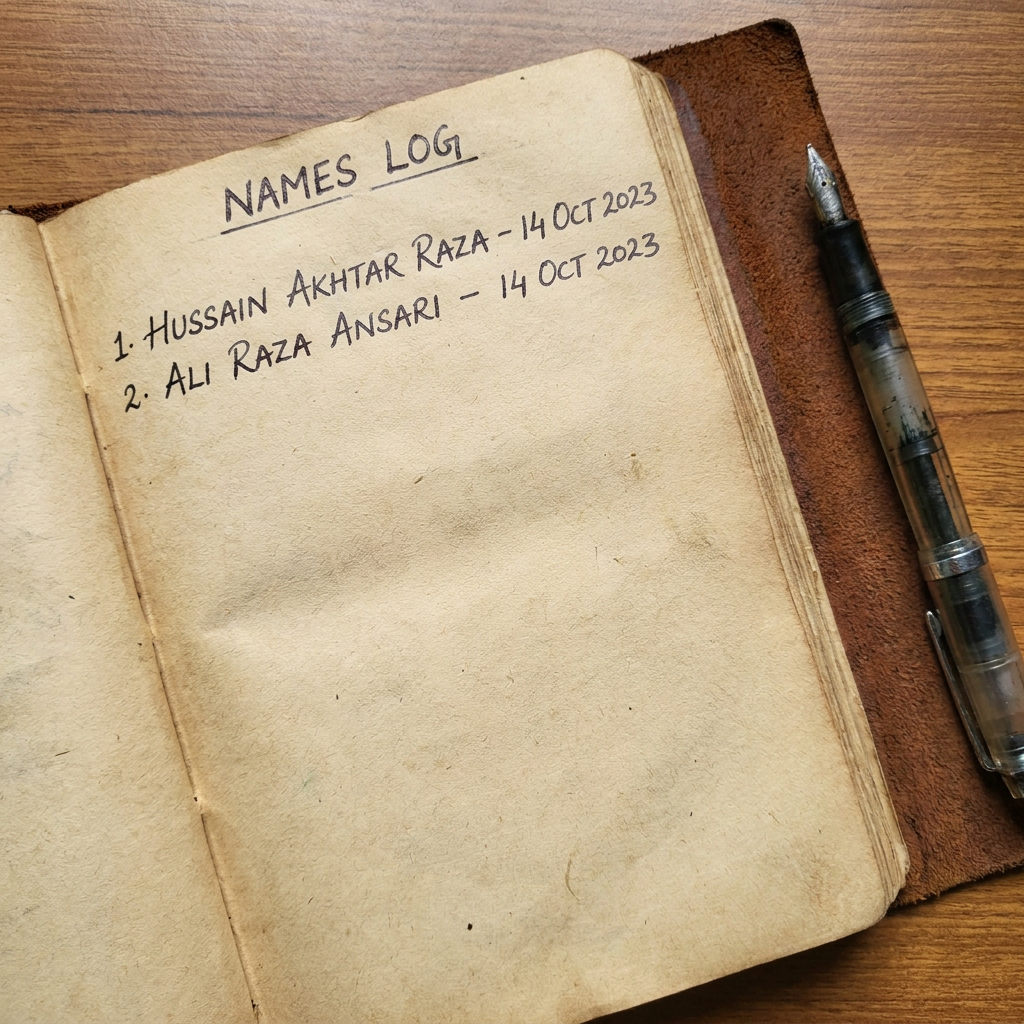 NAMES LOG
1. HUSSAIN AKHTAR RAZA - 14 OCT 2023
2. ALI RAZA ANSARI - 14 OCT 2023